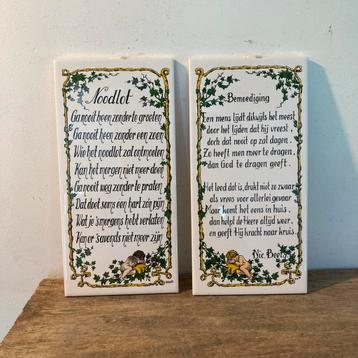 Noodlot
Ga nooit heen zonder te groeten
Ga nooit heen zonder een zoen
Wie het noodlot zal ontmoeten
Kan het morgen niet meer doen
Ga nooit weg zonder te praten
Dat doet soms een hart zo'n pijn
Wat je 's morgens hebt verlaten
Kan er 's avonds niet meer zijn
Bemoediging
Een mens lijdt dikwijls het meest
door het lijden dat hij vreest
doch dat nooit op zal dagen.
Zo heeft men meer te dragen,
dan God te dragen geeft.
Het leed dat is, drukt niet zo zwaar
als vrees voor allerlei gevaar
Maar komt het eens in huis,
dan helpt de Heere altijd weer,
en geeft Hij kracht naar kruis.
Nic. Beets